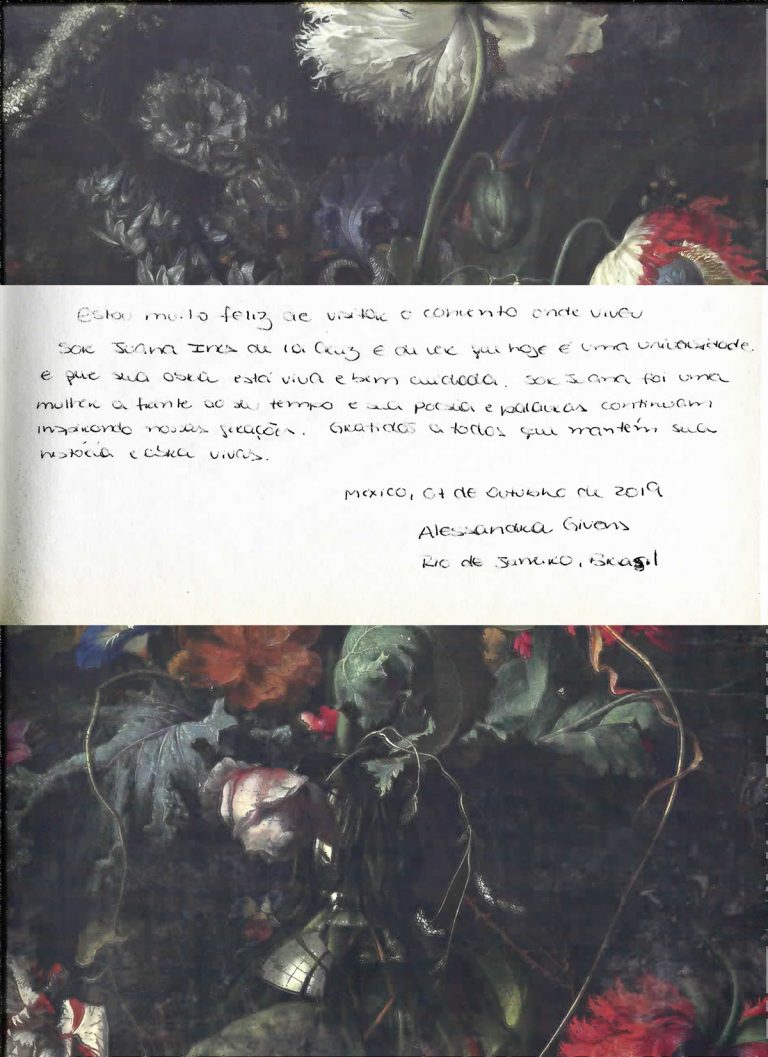 Estou muito feliz de visitar o convento onde viveu
Sor Juana Ines de la Cruz e de ver que hoje é uma universidade
e que sua obra está viva e bem cuidada. Sor Juana foi uma
mulher a frente ao seu tempo e sua poesia e palavras continuam
inspirando novas gerações. Gratidão a todos que mantém sua
história e obra vivas.
Mexico, 07 de outubro de 2019
Alessandra Givens
Rio de Janeiro, Brasil